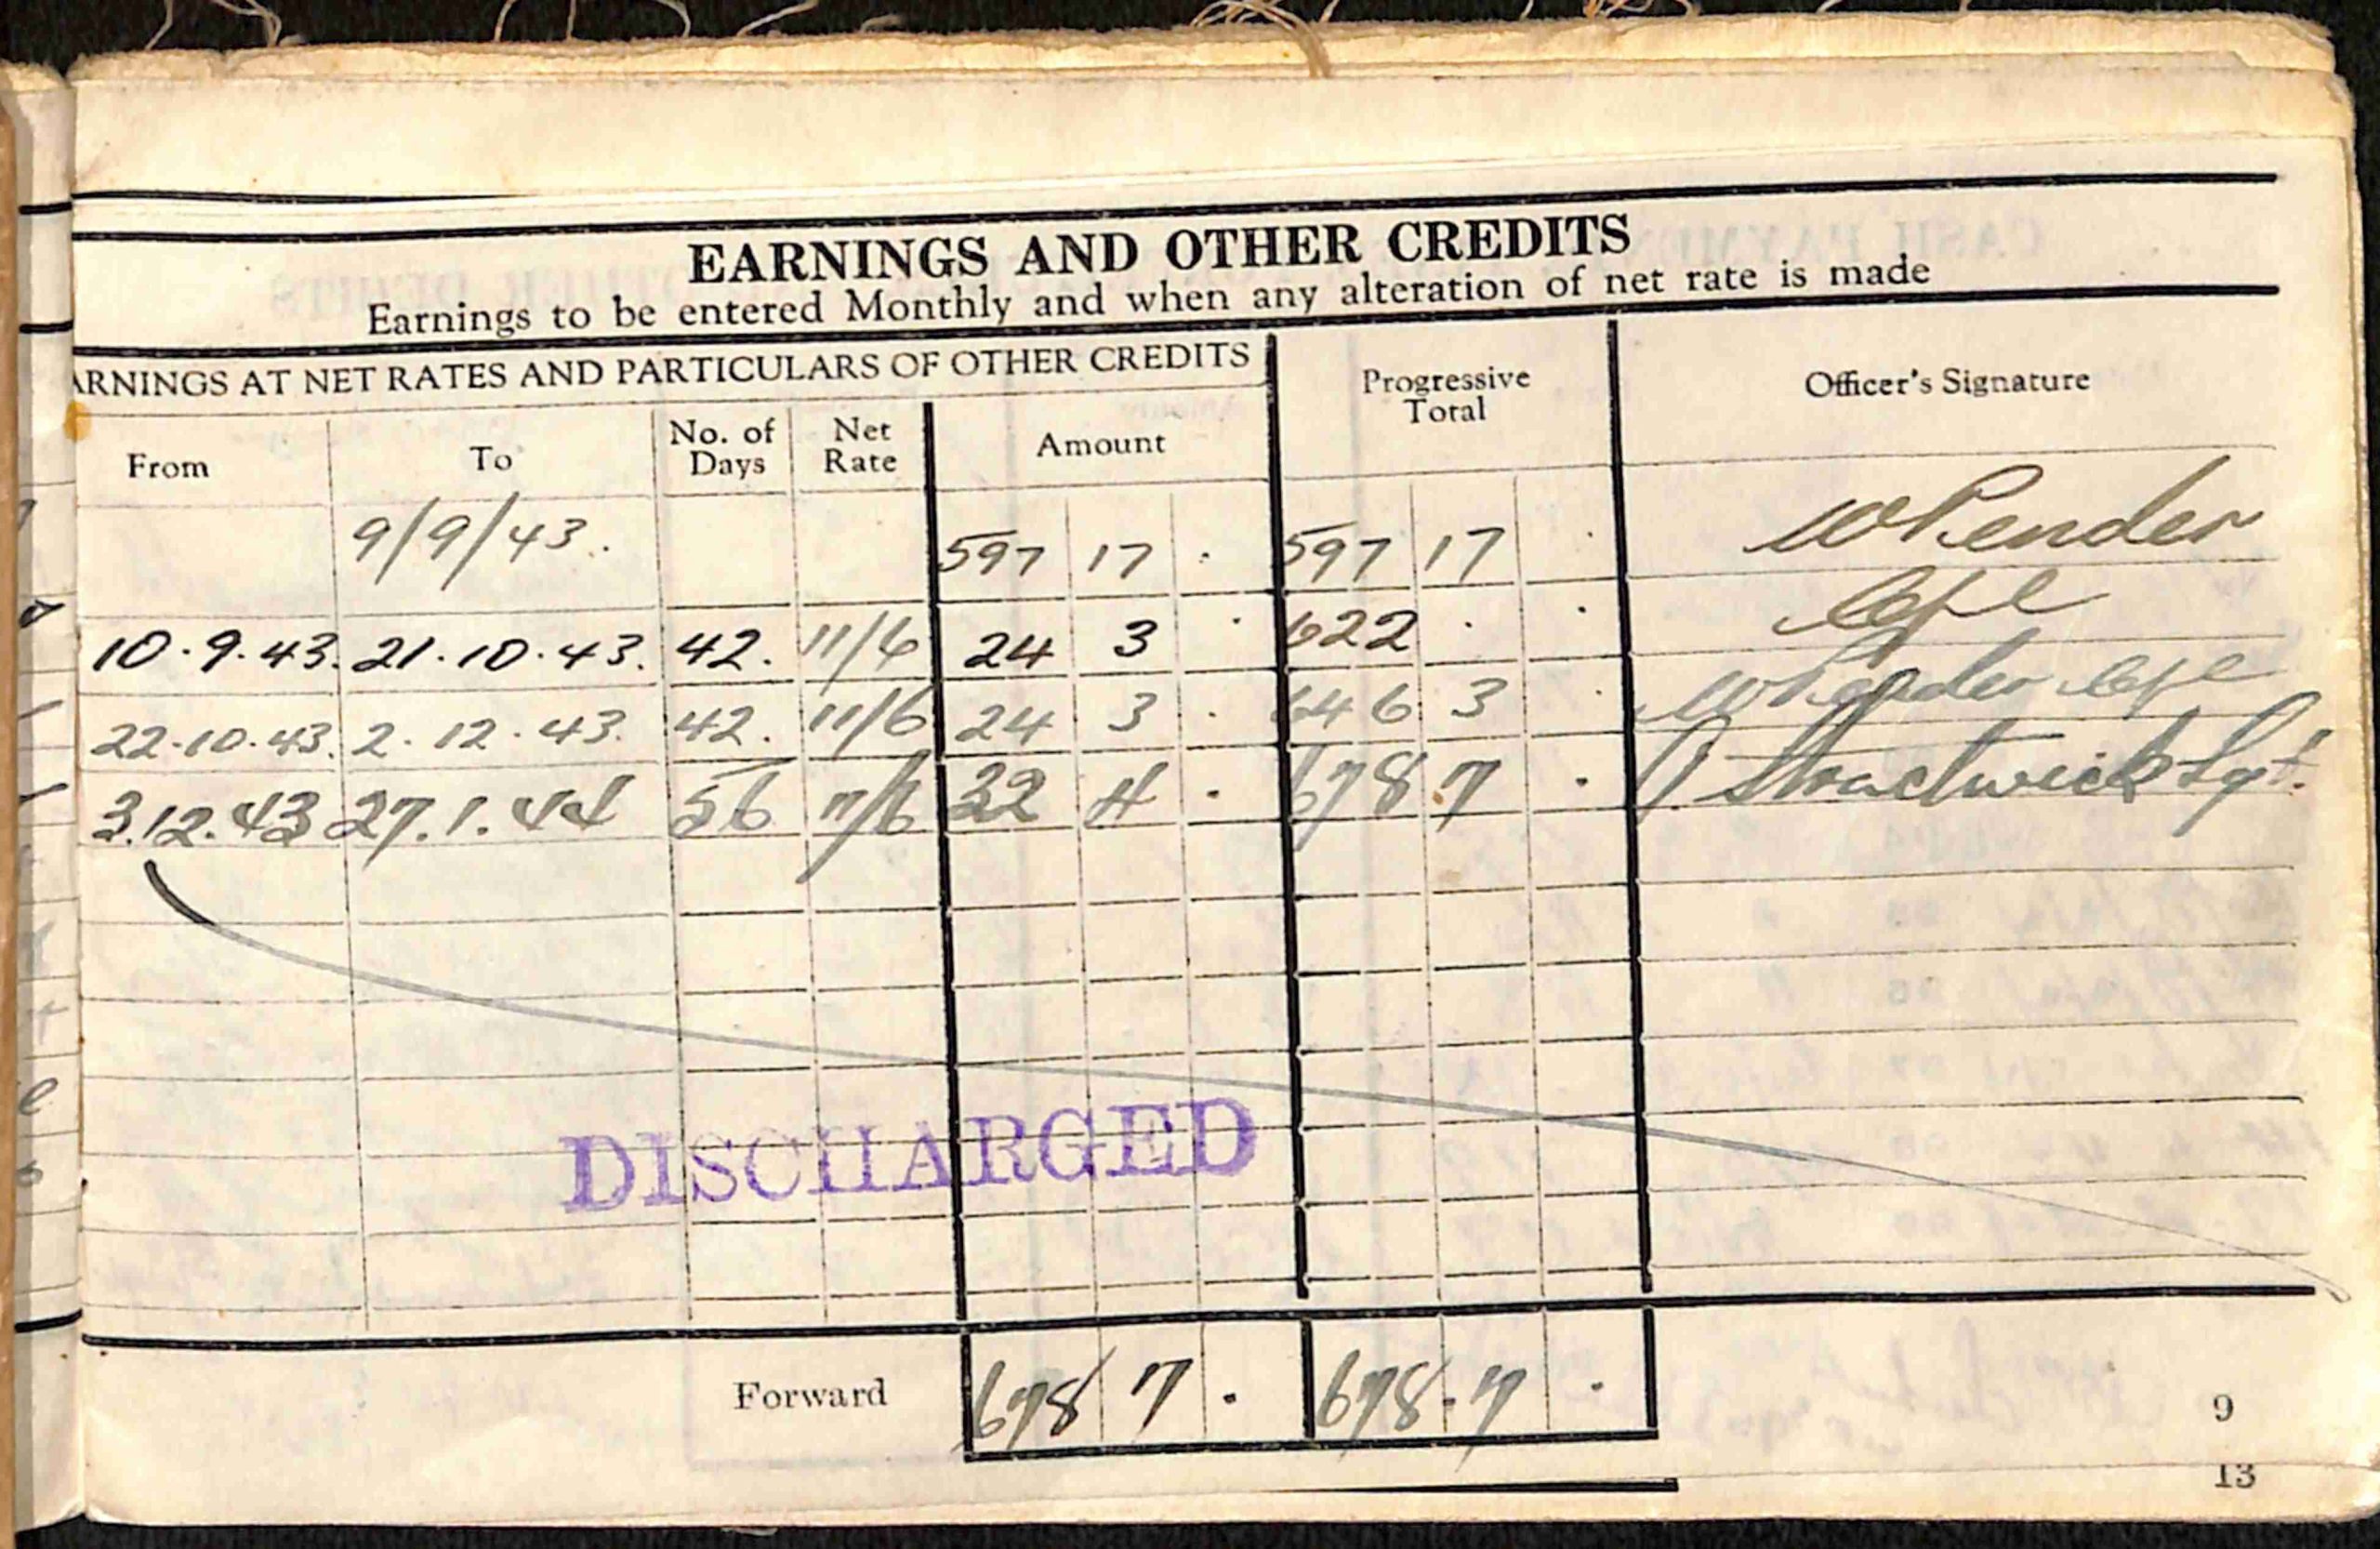 EARNINGS AND OTHER CREDITS
Earnings to be entered Monthly and when any alteration of net rate is made
ARNINGS AT NET RATES AND PARTICULARS OF OTHER CREDITS
Progressive Total
Officer's Signature
From To No. of Days Net Rate Amount
9/9/43. 597 17 . 597 17 . W Pender
Cpl
10.9.43. 21.10.43. 42. 11/6 24 3 . 622 . .
22.10.43. 2.12.43. 42. 11/6 24 3 . 646 3 . W Pender Cpl
3.12.43 27.1.44 56 11/6 32 4 . 678 7 . Stractwick Sgt.
DISCHARGED
Forward 678 7 . 678 . 7 .
9
13